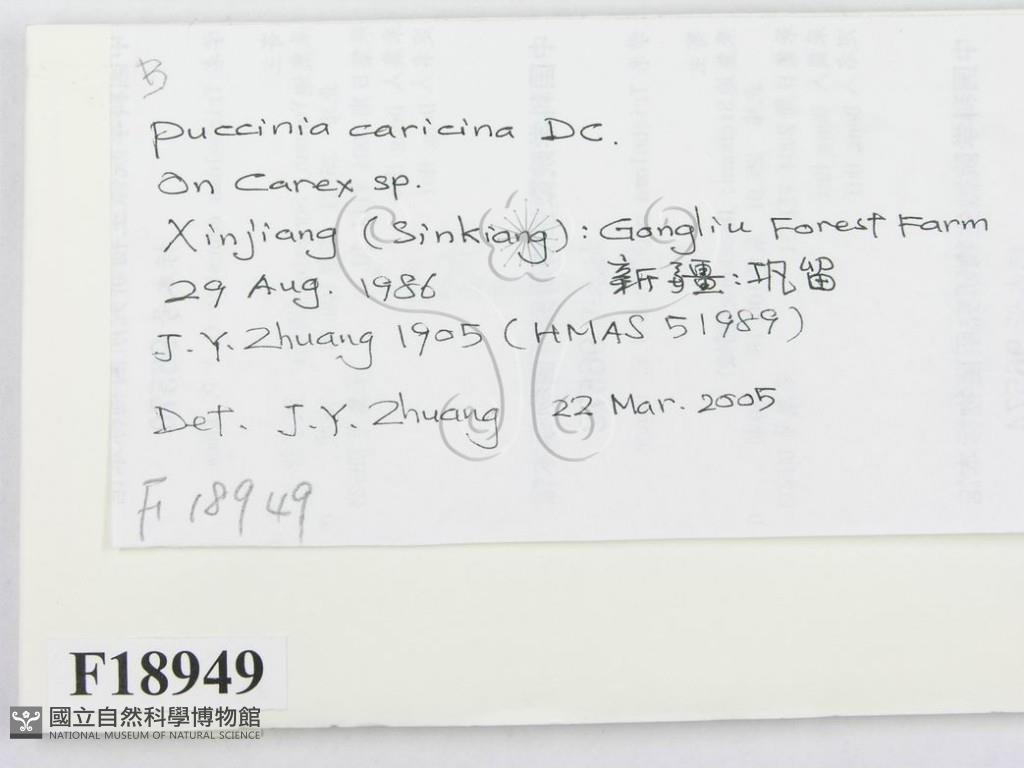 B
Puccinia caricina DC.
On Carex sp.
Xinjiang (Sinkiang): Gongliu Forest Farm
29 Aug. 1986 新疆:巩留
J.Y. Zhuang 1905 (HMAS 51989)
Det. J.Y. Zhuang 22 Mar. 2005
F18949
F18949
國立自然科學博物館
NATIONAL MUSEUM OF NATURAL SCIENCE